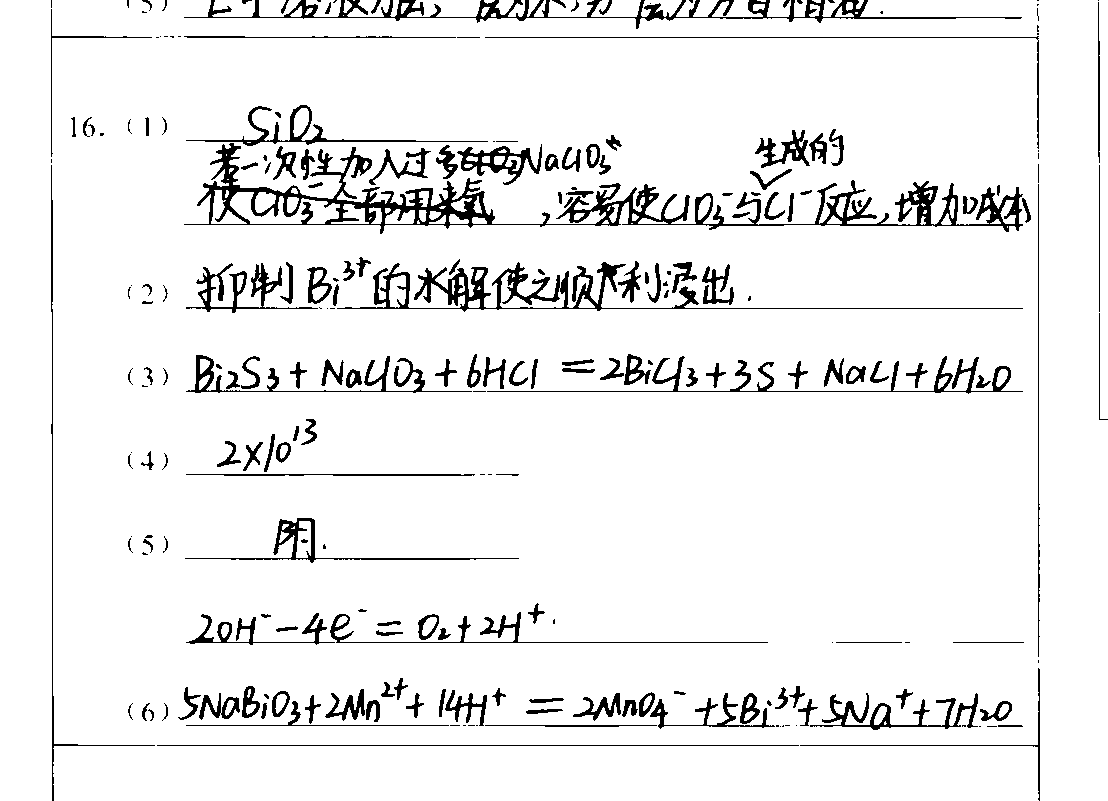 16. (1) SiO2
若一次性加入过多NaClO3
,容易使ClO3-与生成的Cl-反应,增加成本
(2) 抑制Bi3+的水解使之顺利浸出.
(3) Bi2S3 + NaClO3 + 6HCl = 2BiCl3 + 3S + NaCl + 6H2O
(4) 2×10^13
(5) 阴.
2OH- - 4e- = O2 + 2H+.
(6) 5NaBiO3 + 2Mn2+ + 14H+ = 2MnO4- + 5Bi3+ + 5Na+ + 7H2O